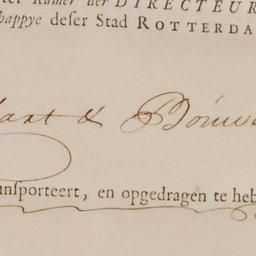 ter Kamer der DIRECTEUR
happye deser Stad ROTTERDA
aart & Bouw
ansporteert, en opgedragen te heb